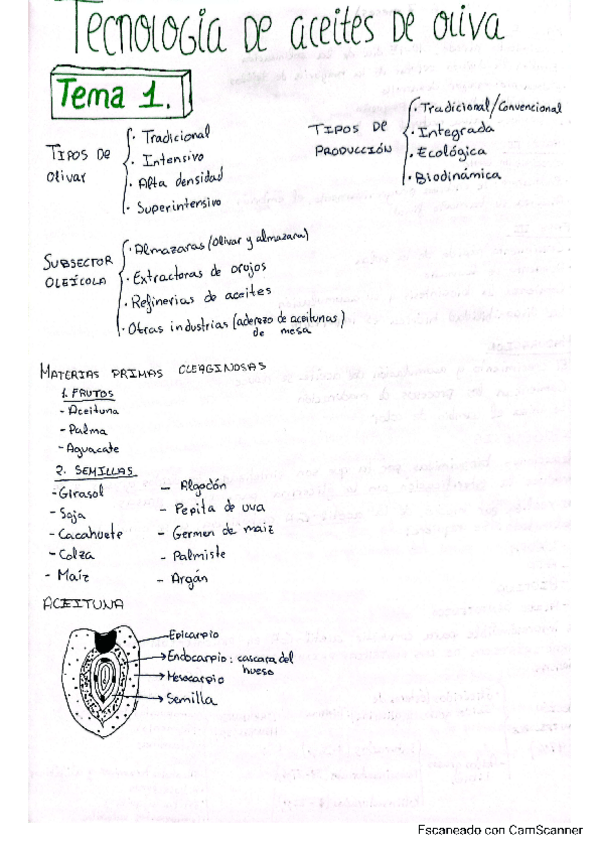 Tecnología De aceites De oliva
Tema 1.
Tipos de olivar
· Tradicional
· Intensivo
· Alta densidad
· Superintensivo
Tipos de producción
· Tradicional/Convencional
· Integrada
· Ecológica
· Biodinámica
Subsector oleícola
· Almazaras (olivar y almazara)
· Extractoras de orujos
· Refinerias de aceites
· Otras industrias (aderezo de aceitunas de mesa)
Materias primas oleaginosas
1. Frutos
- Aceituna
- Palma
- Aguacate
2. Semillas
- Girasol
- Soja
- Cacahuete
- Colza
- Maíz
- Algodón
- Pepita de uva
- Germen de maiz
- Palmiste
- Argán
Aceituna
Epicarpio
Endocarpio: cascara del hueso
Mesocarpio
Semilla
Escaneado con CamScanner